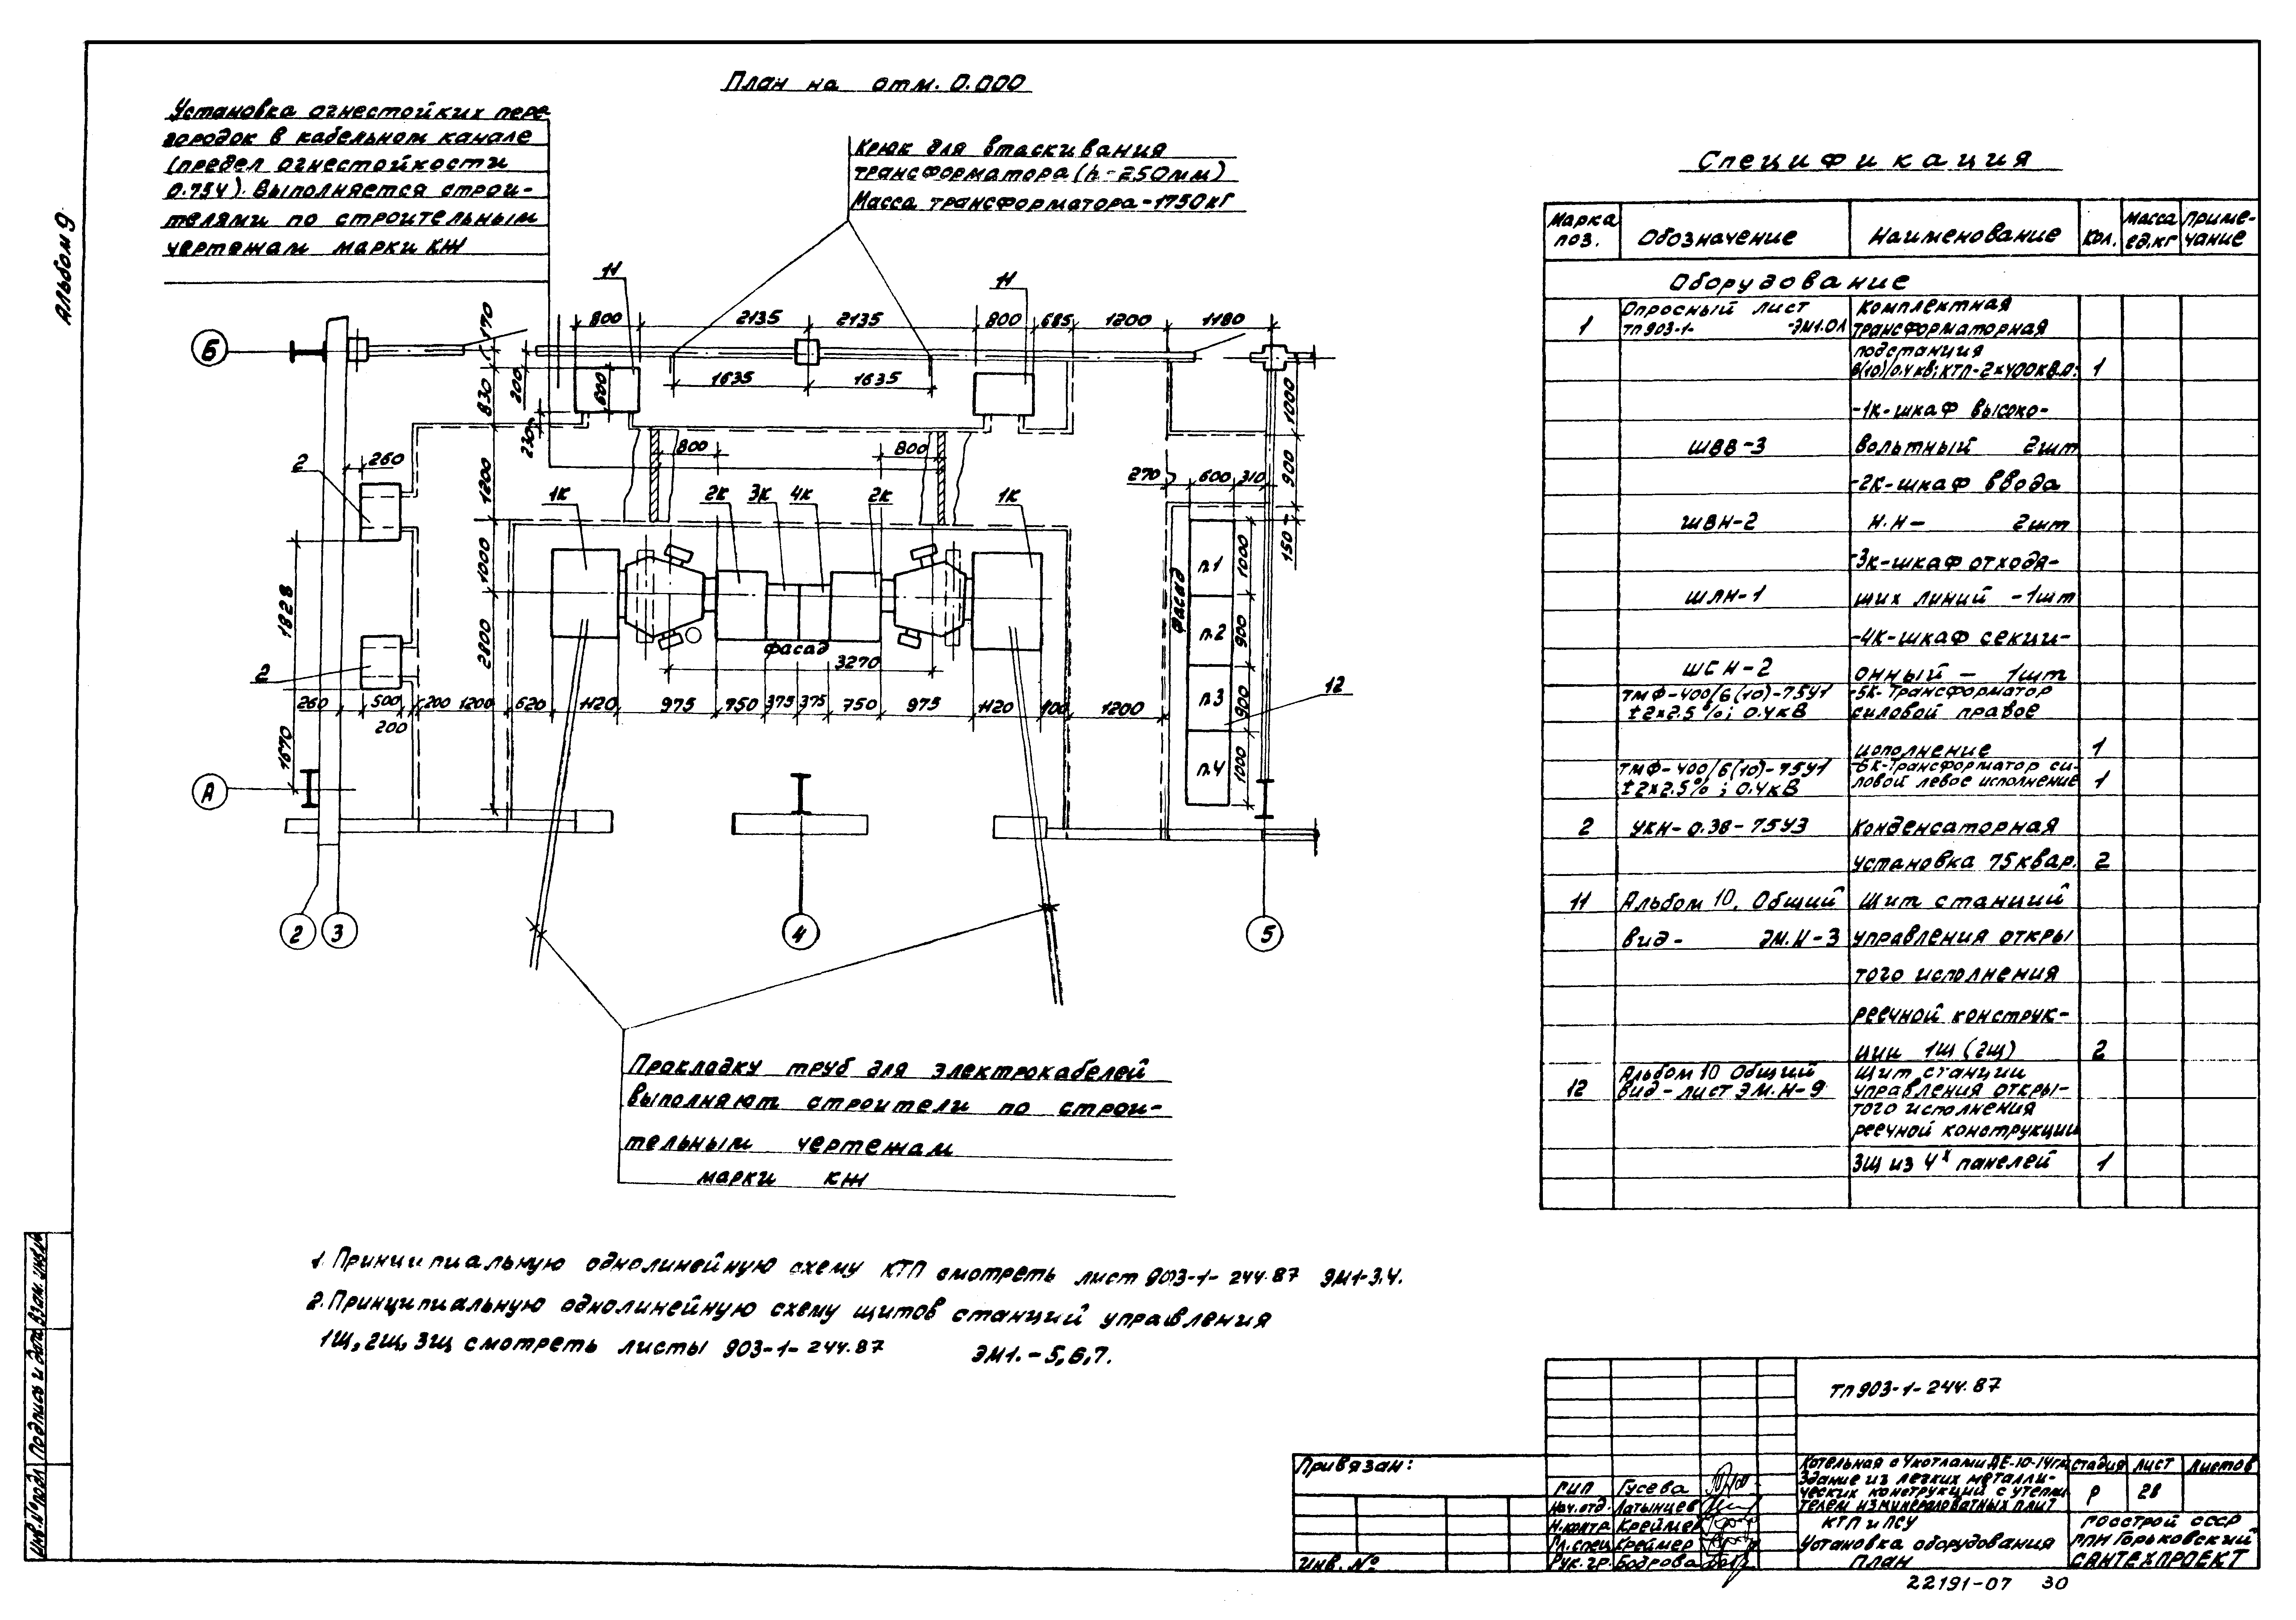 План на отм. 0.000
Установка огнестойких пере-
городок в кабельном канале
(предел огнестойкости
0.75ч). Выполняется строи-
телями по строительным
чертежам марки КЖ
Крюк для втаскивания
трансформатора (h-250мм)
Масса трансформатора-1750кг
Альбом 9
11
11
800 2135 2135 800 685 1200 1180
170
Б
1635 1635
830
200
600
230
1000
2
260
800 800
1200
900
270 600 310
1К 2К 3К 4К 2К 1К
150
1000
1828
п.1
1000
фасад
п.2
900
2
2800
фасад
3270
п.3
900
12
260 500 200 1200 620 1120 975 750 375 375 750 975 1120 100 1200
200
1670
п.4
1000
А
2 3 4 5
Прокладку труб для электрокабелей
выполняют строители по строи-
тельным чертежам
марки КЖ
1. Принципиальную однолинейную схему КТП смотреть лист 903-1-244.87 ЭМ1-3,4.
2. Принципиальную однолинейную схему щитов станций управления
1Щ, 2Щ, 3Щ смотреть листы 903-1-244.87 ЭМ1.-5,6,7.
Спецификация
Марка поз. Обозначение Наименование Кол. Масса ед.кг Приме-чание
Оборудование
Опросный лист Комплектная
1 ТП903-1- -ЭМ1.ОЛ трансформаторная
подстанция
6(10)/0.4кв; КТП-2х400кв.а: 1
-1К-шкаф высоко-
ШВВ-3 вольтный 2шт
-2К-шкаф ввода
ШВН-2 Н.Н- 2шт
-3К-шкаф отходя-
ШЛН-1 щих линий -1шт
-4К-шкаф секци-
ШСН-2 онный - 1шт
ТМФ-400/6(10)-75У1 -5К-Трансформатор
±2х2.5%; 0.4кВ силовой правое
исполнение 1
ТМФ-400/6(10)-75У1 -6К-Трансформатор си-
±2х2.5%; 0.4кВ ловой левое исполнение 1
2 УКН-0.38-75У3 Конденсаторная
установка 75квар. 2
11 Альбом 10. Общий Щит станций
вид- ЭМ.Н-3 управления откры
того исполнения
реечной конструк-
ции 1Щ (2Щ) 2
Альбом 10 Общий Щит станции
12 вид-лист ЭМ.Н-9 управления откры-
того исполнения
реечной конструкции
3Щ из 4х панелей 1
ТП903-1-244.87
Привязан:
Инв. №
ГИП Гусева
Нач.отд. Латынцев
Н.контр Креймер
Гл.спец Креймер
Рук.гр. Бодрова
Котельная с 4 котлами ДЕ-10-14гм
Здание из легких металли-
ческих конструкций с утепли-
телем из минераловатных плит
стадия лист листов
Р 28
КТП и ПСУ
Установка оборудования
План
Госстрой СССР
ГПИ Горьковский
САНТЕХПРОЕКТ
22191-07 30
Инв.№ подл Подпись и дата Взам. инв.№